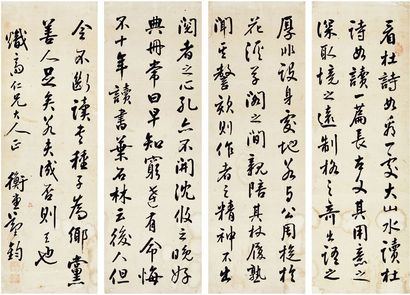 看杜詩如看一處大山水讀杜
詩如讀一篇長古文其用意之
深取境之遠制格之奇出語之
厚非設身處地若與公周旋於
花溪草閣之間親陪其杖履熟
聞其謦欬則作者之精神不出
閱者之心孔亦不開沈攸之晚好
典冊常曰早知窮達有命悔
不十年讀書葉石林云後人但
令不斷讀書種子為鄉黨
善人足矣若夫成否則天也
熾高仁兄大人正